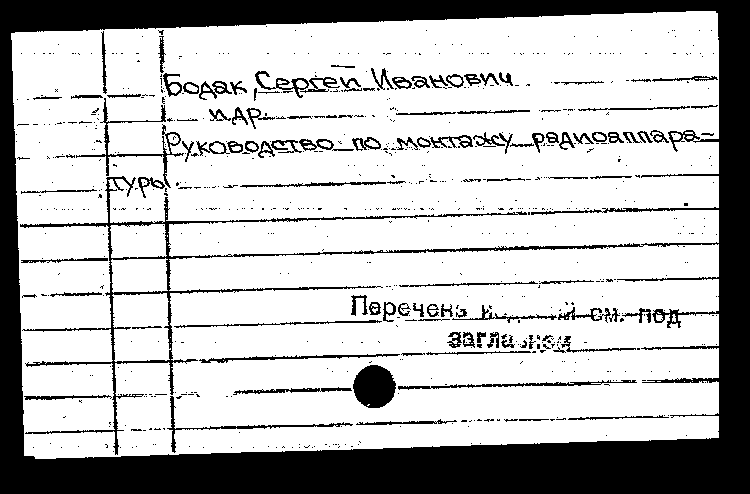 Бодак, Сергей Иванович
и др.
Руководство по монтажу радиоаппара-
туры
Перечень см. под